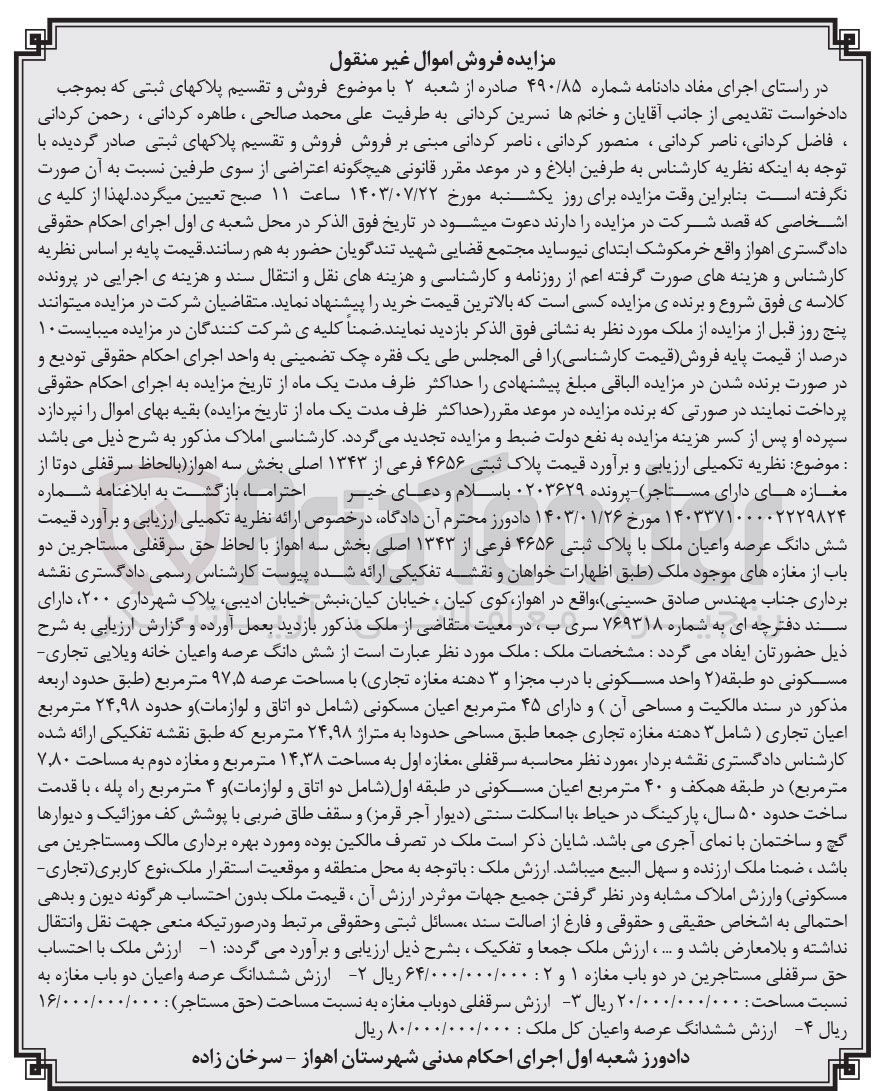 مزایده فروش اموال غیر منقول
در راستای اجرای مفاد دادنامه شماره ۴۹۰/۸۵ صادره از شعبه ۲ با موضوع فروش و تقسیم پلاکهای ثبتی که بموجب
دادخواست تقدیمی از جانب آقایان و خانم ها نسرین کردانی به طرفیت علی محمد صالحی ، طاهره کردانی ، رحمن کردانی
، فاضل کردانی، ناصر کردانی ، منصور کردانی ، ناصر کردانی مبنی بر فروش فروش و تقسیم پلاکهای ثبتی صادر گردیده با
توجه به اینکه نظریه کارشناس به طرفین ابلاغ و در موعد مقرر قانونی هیچگونه اعتراضی از سوی طرفین نسبت به آن صورت
نگرفته است بنابراین وقت مزایده برای روز یکشنبه مورخ ۱۴۰۳/۰۷/۲۲ ساعت ۱۱ صبح تعیین میگردد.لهذا از کلیه ی
اشخاصی که قصد شرکت در مزایده را دارند دعوت میشود در تاریخ فوق الذکر در محل شعبه ی اول اجرای احکام حقوقی
دادگستری اهواز واقع خرمکوشک ابتدای نیوساید مجتمع قضایی شهید تندگویان حضور به هم رسانند.قیمت پایه بر اساس نظریه
کارشناس و هزینه های صورت گرفته اعم از روزنامه و کارشناسی و هزینه های نقل و انتقال سند و هزینه ی اجرایی در پرونده
کلاسه ی فوق شروع و برنده ی مزایده کسی است که بالاترین قیمت خرید را پیشنهاد نماید. متقاضیان شرکت در مزایده میتوانند
پنج روز قبل از مزایده از ملک مورد نظر به نشانی فوق الذکر بازدید نمایند.ضمناً کلیه ی شرکت کنندگان در مزایده میبایست۱۰
درصد از قیمت پایه فروش(قیمت کارشناسی)را فی المجلس طی یک فقره چک تضمینی به واحد اجرای احکام حقوقی تودیع و
در صورت برنده شدن در مزایده الباقی مبلغ پیشنهادی را حداکثر ظرف مدت یک ماه از تاریخ مزایده به اجرای احکام حقوقی
پرداخت نمایند در صورتی که برنده مزایده در موعد مقرر(حداکثر ظرف مدت یک ماه از تاریخ مزایده) بقیه بهای اموال را نپردازد
سپرده او پس از کسر هزینه مزایده به نفع دولت ضبط و مزایده تجدید می‌گردد. کارشناسی املاک مذکور به شرح ذیل می باشد
: موضوع: نظریه تکمیلی ارزیابی و برآورد قیمت پلاک ثبتی ۴۶۵۶ فرعی از ۱۳۴۳ اصلی بخش سه اهواز(بالحاظ سرقفلی دوتا از
مغازه های دارای مستاجر)-پرونده ۰۲۰۳۶۲۹ باسلام و دعای خیر احتراما، بازگشت به ابلاغنامه شماره
۱۴۰۳۳۷۱۰۰۰۰۲۲۲۹۸۲۴ مورخ ۱۴۰۳/۰۱/۲۶ دادورز محترم آن دادگاه، درخصوص ارائه نظریه تکمیلی ارزیابی و برآورد قیمت
شش دانگ عرصه واعیان ملک با پلاک ثبتی ۴۶۵۶ فرعی از ۱۳۴۳ اصلی بخش سه اهواز با لحاظ حق سرقفلی مستاجرین دو
باب از مغازه های موجود ملک (طبق اظهارات خواهان و نقشه تفکیکی ارائه شده پیوست کارشناس رسمی دادگستری نقشه
برداری جناب مهندس صادق حسینی)،واقع در اهواز،کوی کیان ، خیابان کیان،نبش خیابان ادیبی، پلاک شهرداری ۲۰۰، دارای
سند دفترچه ای به شماره ۷۶۹۳۱۸ سری ب ، در معیت متقاضی از ملک مذکور بازدید بعمل آورده و گزارش ارزیابی به شرح
ذیل حضورتان ایفاد می گردد : مشخصات ملک : ملک مورد نظر عبارت است از شش دانگ عرصه واعیان خانه ویلایی تجاری-
مسکونی دو طبقه(۲ واحد مسکونی با درب مجزا و ۳ دهنه مغازه تجاری) با مساحت عرصه ۹۷,۵ مترمربع (طبق حدود اربعه
مذکور در سند مالکیت و مساحی آن ) و دارای ۴۵ مترمربع اعیان مسکونی (شامل دو اتاق و لوازمات)و حدود ۲۴,۹۸ مترمربع
اعیان تجاری ( شامل۳ دهنه مغازه تجاری جمعا طبق مساحی حدودا به متراژ ۲۴,۹۸ مترمربع که طبق نقشه تفکیکی ارائه شده
کارشناس دادگستری نقشه بردار ،مورد نظر محاسبه سرقفلی ،مغازه اول به مساحت ۱۴,۳۸ مترمربع و مغازه دوم به مساحت ۷,۸۰
مترمربع) در طبقه همکف و ۴۰ مترمربع اعیان مسکونی در طبقه اول(شامل دو اتاق و لوازمات)و ۴ مترمربع راه پله ، با قدمت
ساخت حدود ۵۰ سال، پارکینگ در حیاط ،با اسکلت سنتی (دیوار آجر قرمز) و سقف طاق ضربی با پوشش کف موزائیک و دیوارها
گچ و ساختمان با نمای آجری می باشد. شایان ذکر است ملک در تصرف مالکین بوده ومورد بهره برداری مالک ومستاجرین می
باشد ، ضمنا ملک ارزنده و سهل البیع میباشد. ارزش ملک : باتوجه به محل منطقه و موقعیت استقرار ملک،نوع کاربری(تجاری-
مسکونی) وارزش املاک مشابه ودر نظر گرفتن جمیع جهات موثردر ارزش آن ، قیمت ملک بدون احتساب هرگونه دیون و بدهی
احتمالی به اشخاص حقیقی و حقوقی و فارغ از اصالت سند ،مسائل ثبتی وحقوقی مرتبط ودرصورتیکه منعی جهت نقل وانتقال
نداشته و بلامعارض باشد و ... ، ارزش ملک جمعا و تفکیک ، بشرح ذیل ارزیابی و برآورد می گردد: ۱- ارزش ملک با احتساب
حق سرقفلی مستاجرین در دو باب مغازه ۱ و ۲ : ۶۴/۰۰۰/۰۰۰/۰۰۰ ریال ۲- ارزش ششدانگ عرصه واعیان دو باب مغازه به
نسبت مساحت : ۲۰/۰۰۰/۰۰۰/۰۰۰ ریال ۳- ارزش سرقفلی دوباب مغازه به نسبت مساحت (حق مستاجر) : ۱۶/۰۰۰/۰۰۰/۰۰۰
ریال ۴- ارزش ششدانگ عرصه واعیان کل ملک : ۸۰/۰۰۰/۰۰۰/۰۰۰ ریال
دادورز شعبه اول اجرای احکام مدنی شهرستان اهواز - سرخان زاده
AriaTender